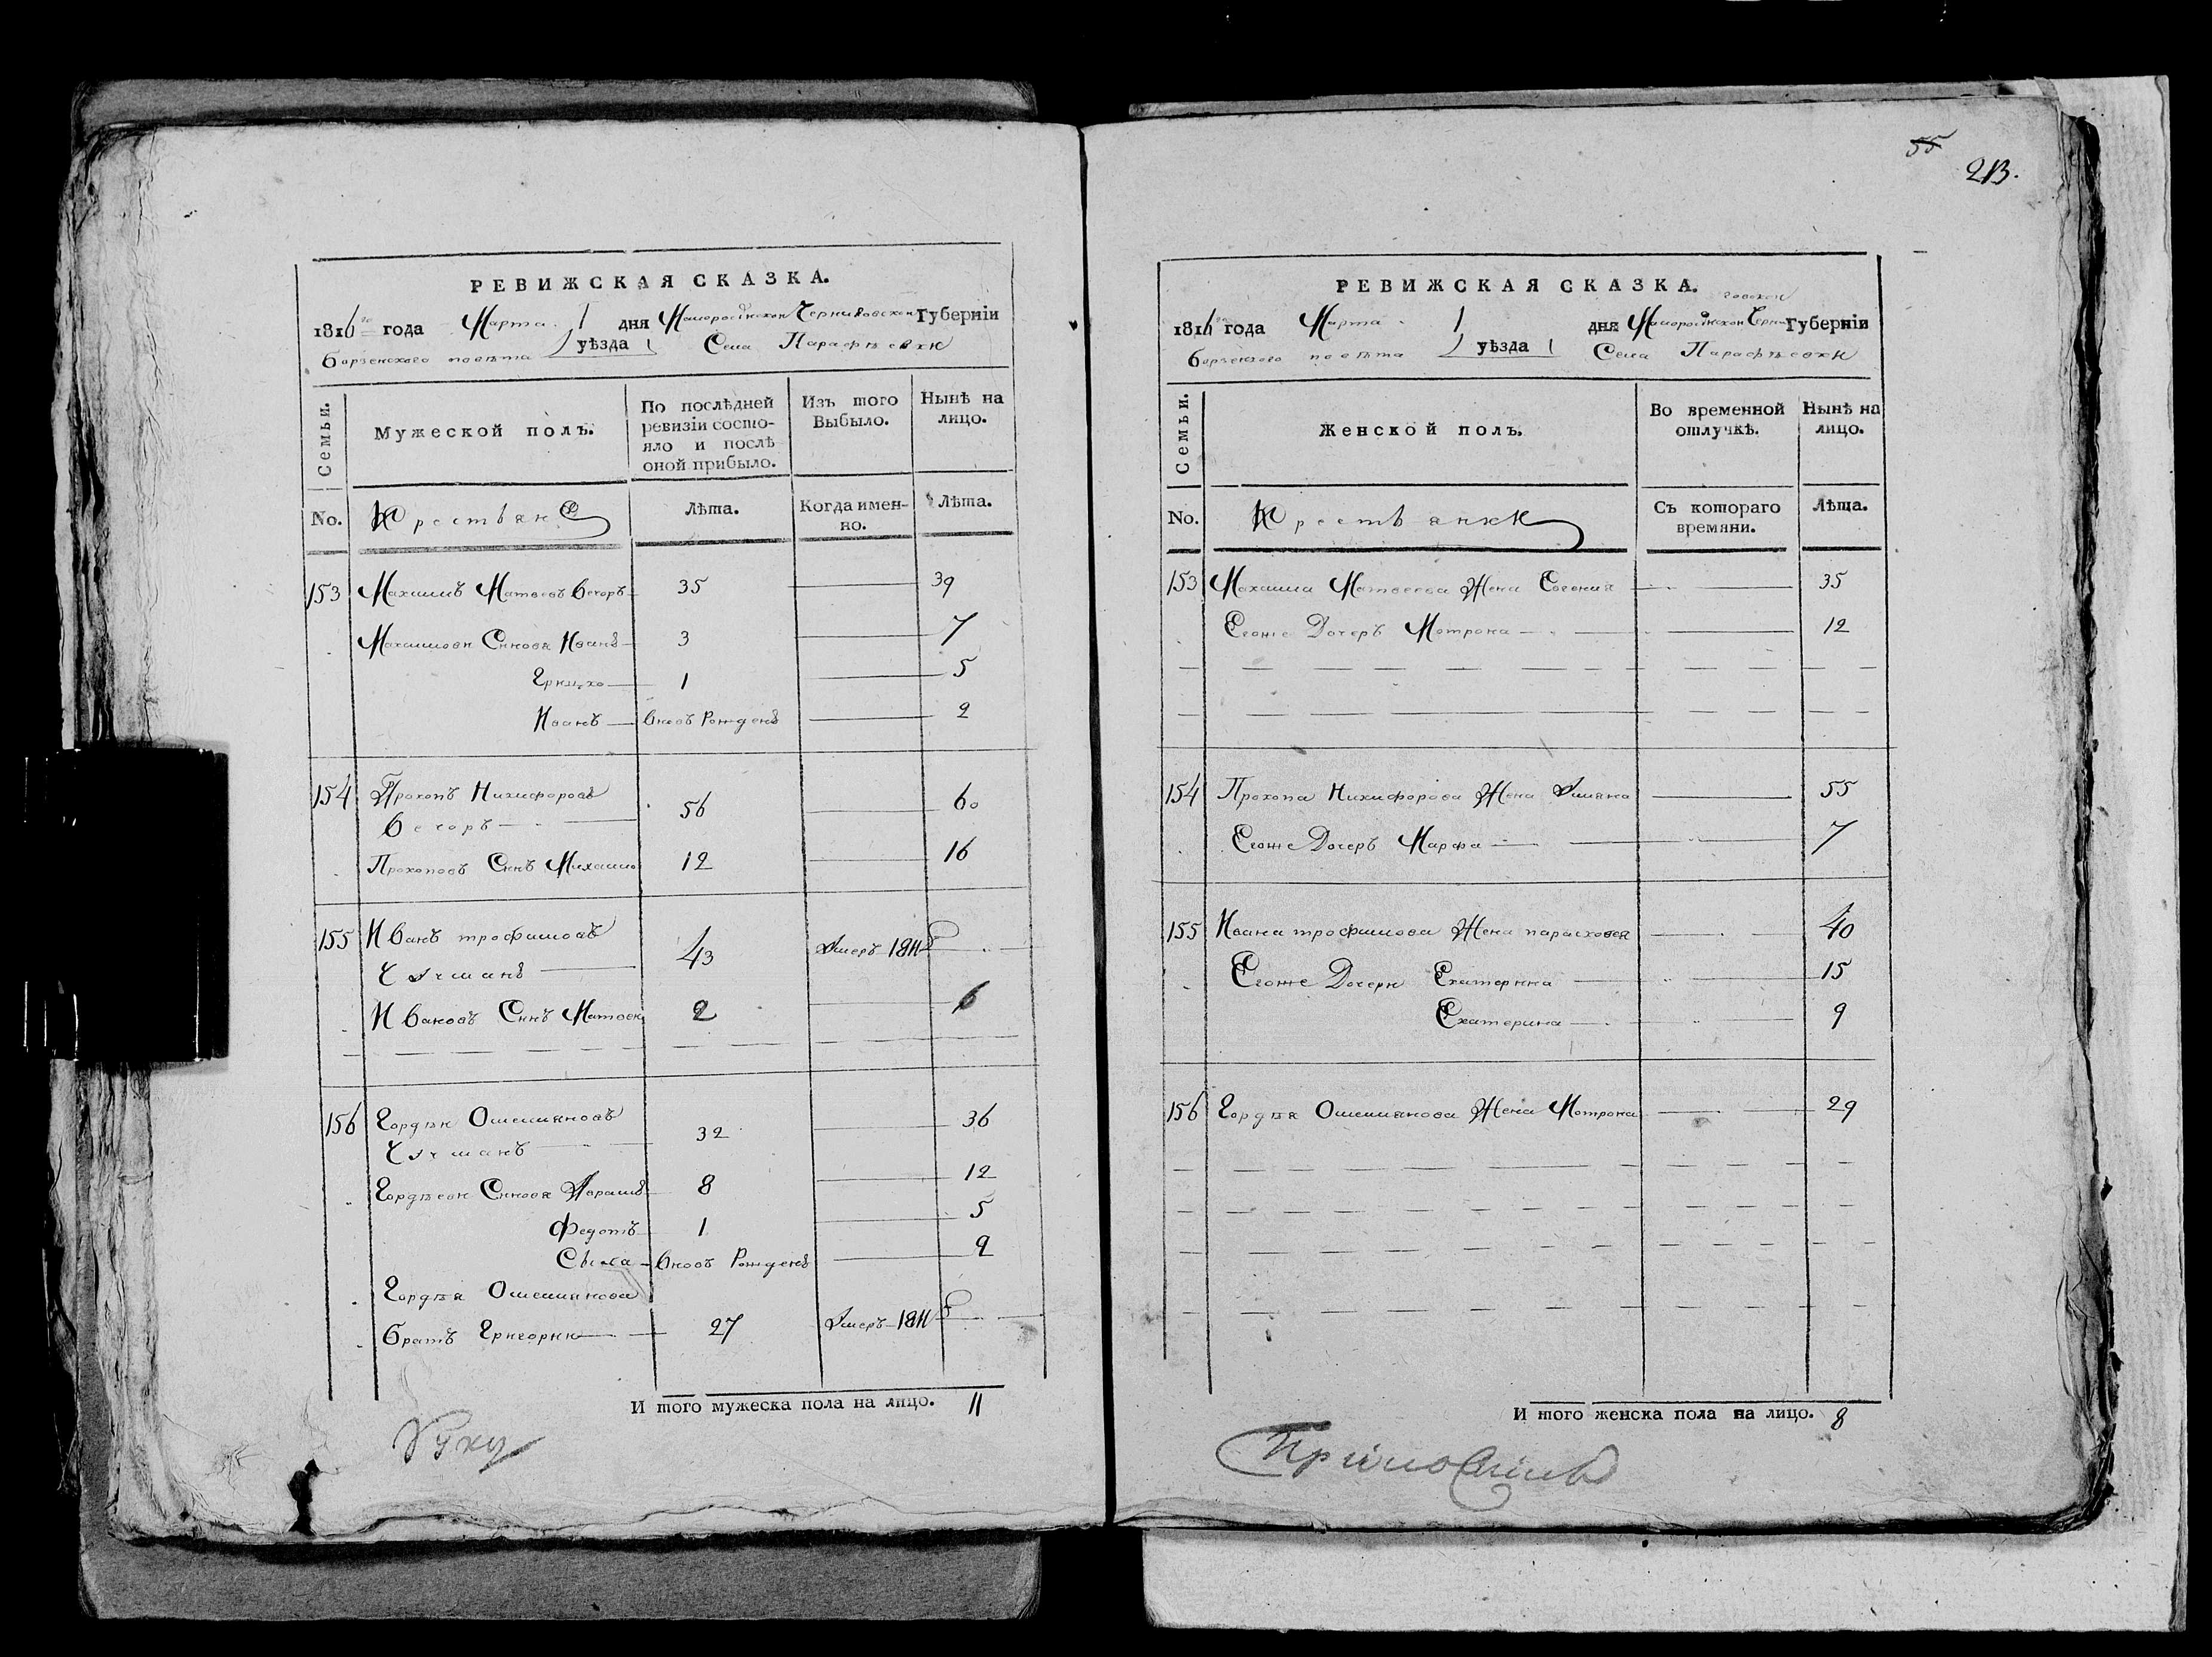 РЕВИЖСКАЯ СКАЗКА.
1816го года Марта 1 дня Малоросійской Черниговской Губерніи
Борзенского повѣта уѣзда Села Парафѣевки
Семьи.
Мужеской полъ.
По послѣдней ревизіи состояло и послѣ оной прибыло.
Изъ того Выбыло.
Нынѣ на лицо.
No.
Крестьяне
Лѣта.
Когда именно.
Лѣта.
153 Максимъ Матвеевъ 35 39
Максимови Сынове Иванъ 3 7
Грицко 1 5
Иванъ вновъ Рожденъ 2
154 Прокопъ Никифоровъ 56 60
Прокоповъ Синъ Михайло 12 16
155 Иванъ трофимовъ 43 Умеръ 1811
Ивановъ Синъ Матвей 2 6
156 Гордѣй Омеляновъ 32 36
Гордѣеви Синове 8 12
Федотъ 1 5
вновъ Рожденъ 2
Гордѣя Омелянова
Братъ Григорий 27 Умеръ 1811
И того мужеска пола на лицо. 11
Руку
55
213.
РЕВИЖСКАЯ СКАЗКА.
1816го года Марта 1 дня Малоросійской Черниговской Губерніи
Борзенского повѣта уѣзда Села Парафѣевки
Семьи.
Женской полъ.
Во временной отлучкѣ.
Нынѣ на лицо.
No.
Крестьянки
Съ котораго времяни.
Лѣта.
153 Максима Матвеева Жена Евгения 35
Егоже Дочеръ Мотрона 12
154 Прокопа Никифорова Жена Уляна 55
Егоже Дочеръ Марфа 7
155 Ивана трофимова Жена парасковея 40
Егоже Дочери Екатерина 15
Екатерина 9
156 Гордѣя Омелянова Жена Мотрона 29
И того женска пола на лицо. 8